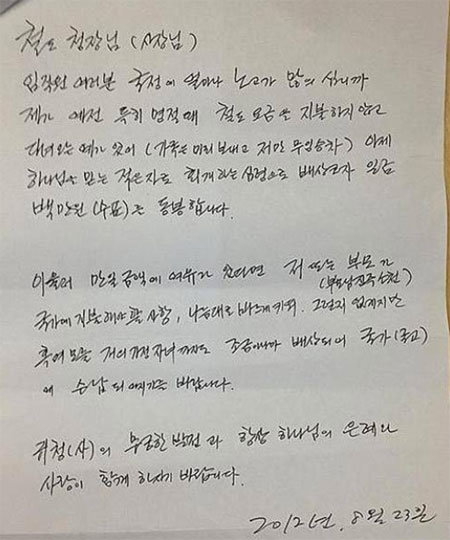 철도 청장님 (사장님)
임직원 여러분 국정에 얼마나 노고가 많으십니까
제가 예전 특히 명절때 철도 요금을 지불하지 않고
다녀오는 예가 있어 (가족은 미리 보내고 저만 무임승차) 이제
하나님을 믿는 적은자로 회개하는 심령으로 배상코자 일금
백만원 (수표)을 동봉합니다.
이울러 만일 금액에 여유가 있다면 저 또는 부모가
국가에 지불해야 할 사항, 나름대로 바르게 키워 그렇지 않겠지만
혹여 모를 저의 가정 자녀까지도 조금이나마 배상되어 국가(국고)
에 수납 되어지기를 바랍니다.
귀청(사)의 무궁한 발전과 항상 하나님의 은혜와
사랑이 함께 하시기 바랍니다.
2012년. 8월 23일